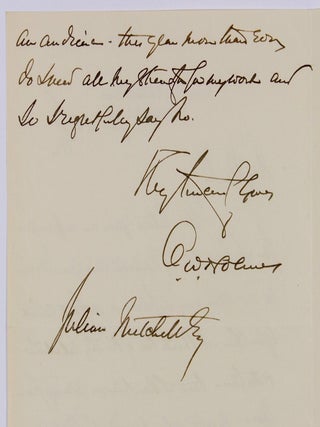 an audience. This year more than ever
do I need all my strength for my work and
so I regretfully say No.
Very sincerely yours
O. W. Holmes
Julian Mitchell Esq